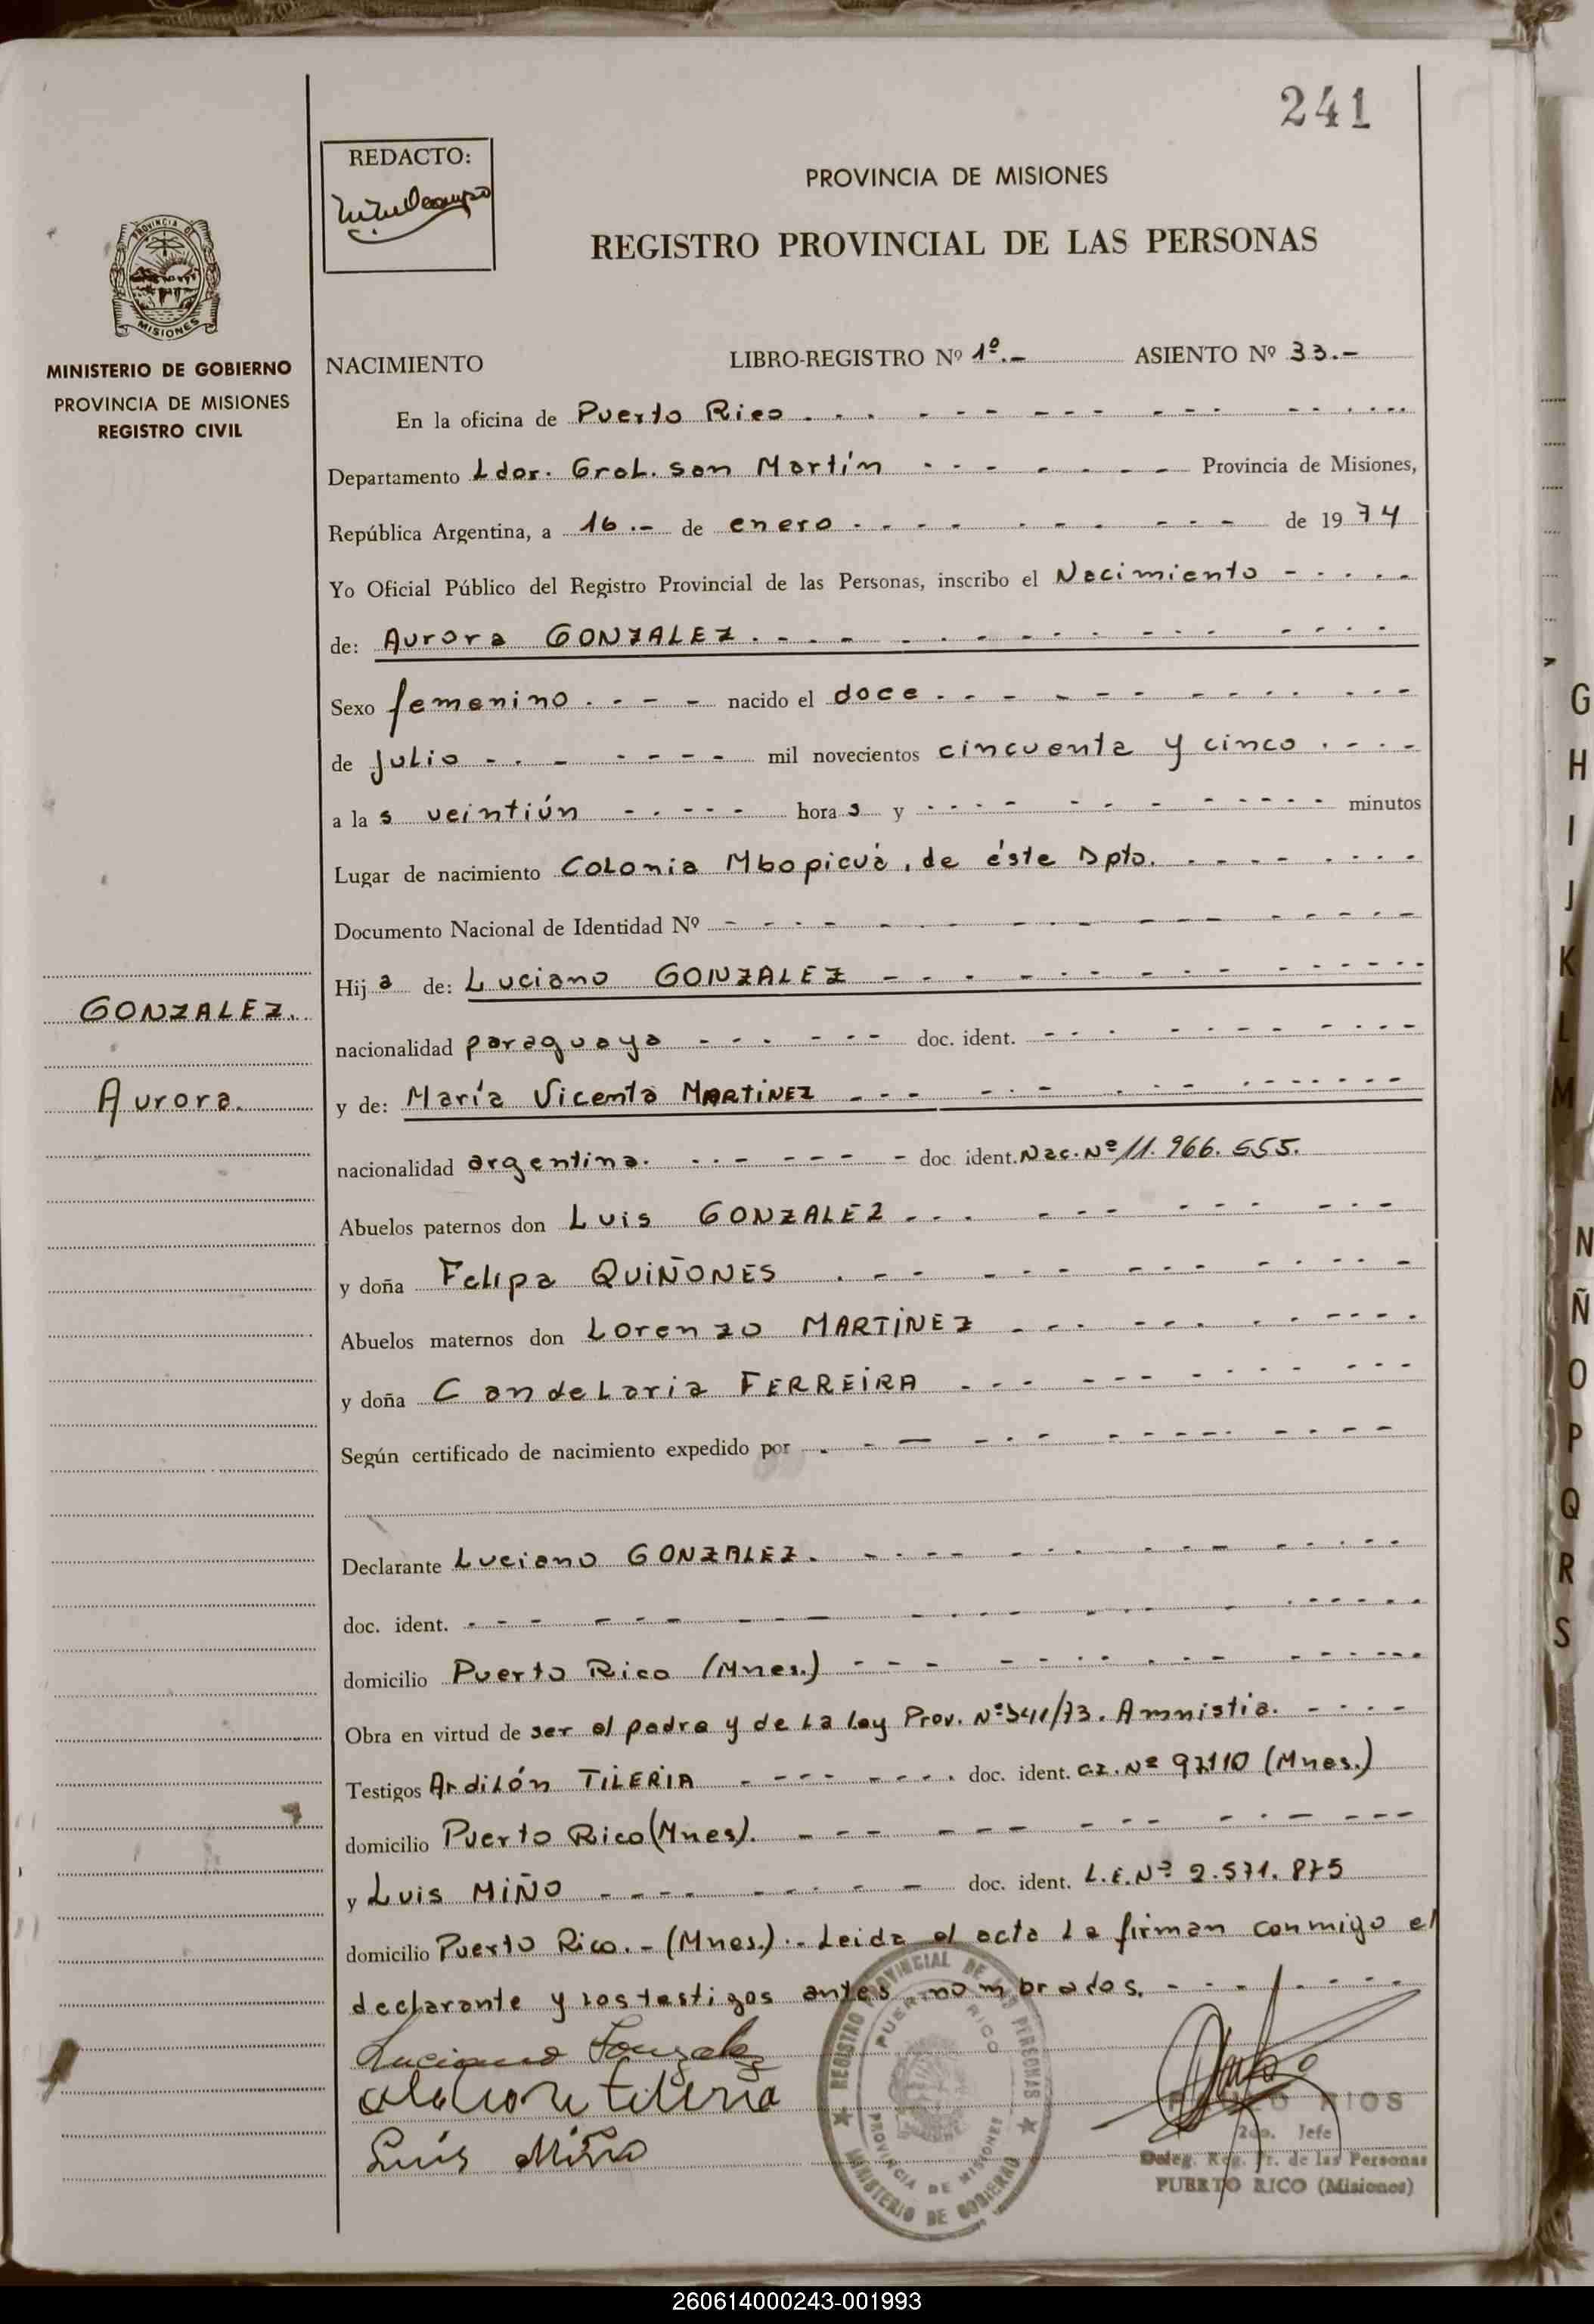 241
REDACTO:
PROVINCIA DE MISIONES
REGISTRO PROVINCIAL DE LAS PERSONAS
PROVINCIA DE
MISIONES
MINISTERIO DE GOBIERNO
PROVINCIA DE MISIONES
REGISTRO CIVIL
NACIMIENTO LIBRO-REGISTRO Nº 1º.- ASIENTO Nº 33.-
En la oficina de Puerto Rico
Departamento Ldor. Gral. san Martín Provincia de Misiones,
República Argentina, a 16.- de enero de 1974
Yo Oficial Público del Registro Provincial de las Personas, inscribo el Nacimiento
de: Aurora GONZALEZ.
Sexo femenino nacido el doce
de julio mil novecientos cincuenta y cinco
a las veintiún horas y minutos
Lugar de nacimiento Colonia Mbopicuá, de éste Dpto.
Documento Nacional de Identidad Nº
Hija de: Luciano GONZALEZ
GONZALEZ.
nacionalidad paraguaya doc. ident.
Aurora.
y de: María Vicenta MARTíNEZ
nacionalidad argentina. doc ident. Nac. Nº 11.966.555.
Abuelos paternos don Luis GONZALEZ
y doña Felipa QUIÑONES
Abuelos maternos don Lorenzo MARTíNEZ
y doña Candelaria FERREiRA
Según certificado de nacimiento expedido por
Declarante Luciano GONZALEZ.
doc. ident.
domicilio Puerto Rico (Mnes.)
Obra en virtud de ser el padre y de la ley Prov. Nº 341/73. Amnistia.
Testigos Ardilón TiLERIA doc. ident. cz. Nº 97110 (Mnes.)
domicilio Puerto Rico (Mnes).
y Luis MiÑO doc. ident. L.E. Nº 2.571.875
domicilio Puerto Rico.- (Mnes.).- Leida el acta la firman conmigo el
declarante y los testigos antes nombrados.
Luciano Gonzalez
tileria
Luis Miño
REGISTRO PROVINCIAL DE LAS PERSONAS
PUERTO RICO
PROVINCIA DE MISIONES
MINISTERIO DE GOBIERNO
RIOS
2do. Jefe
Deleg. Reg. Pr. de las Personas
PUERTO RICO (Misiones)
G
H
I
J
K
L
M
N
Ñ
O
P
Q
R
S
260614000243-001993